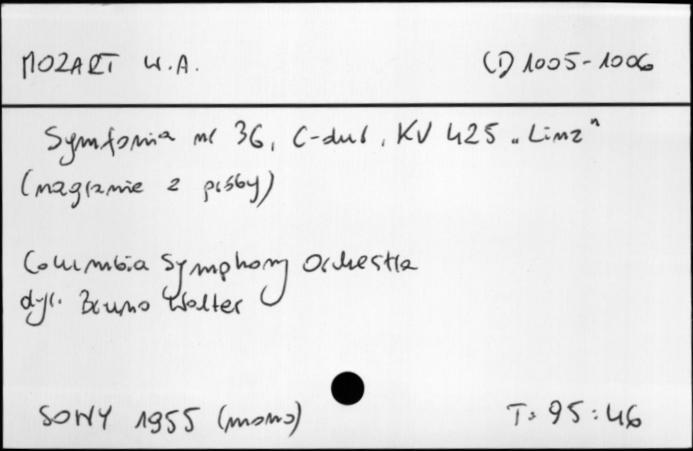 MOZART W.A. CD 1005-1006
Symfonia nr 36, C-dur, KV 425 „Linz"
(nagranie z próby)
Columbia Symphony Orchestra
dyr. Bruno Walter
SONY 1955 (mono) T: 95:46